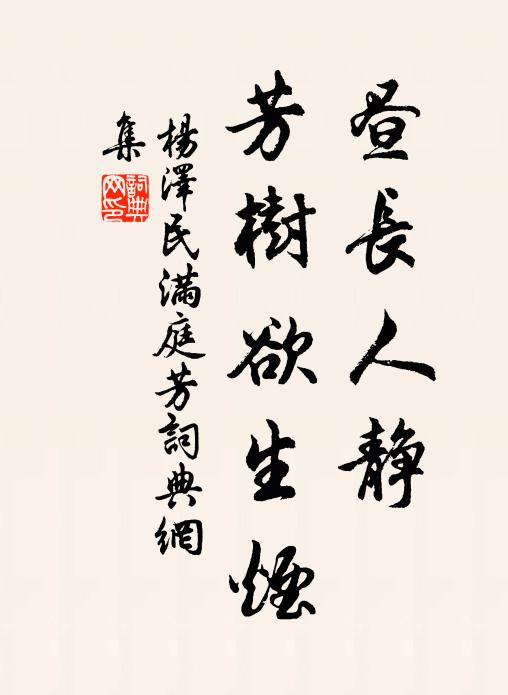 昼長人静
芳樹欲生煙
楊澤民滿庭芳詞典網
集
詞典
网印